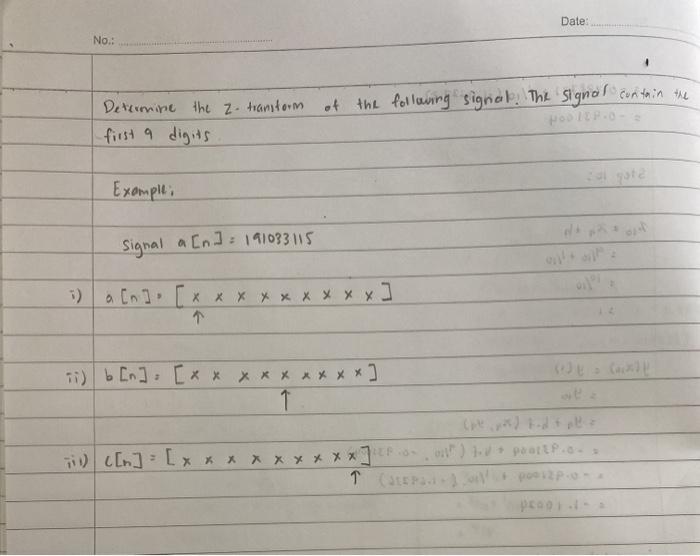 Date:
No.:
Determine the z-transform of the following signal. The signal contain the
first 9 digits
Example;
Signal a[n] = 191033115
i) a[n] = [x x x x x x x x x]
↑
ii) b[n] = [x x x x x x x x x]
↑
iii) c[n] = [x x x x x x x x x]
↑